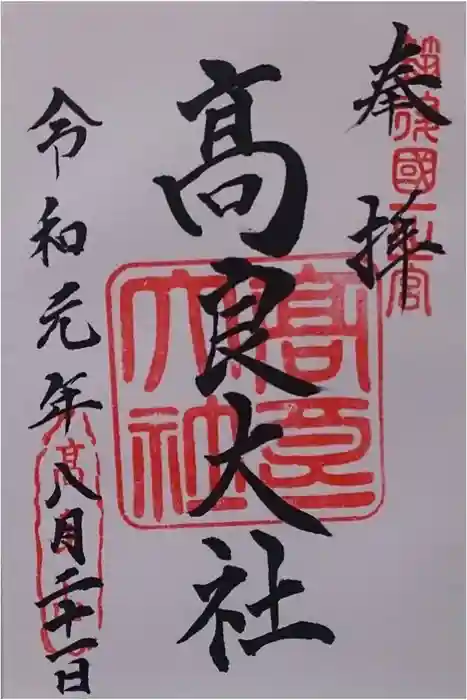 奉拝
筑後國一之宮
高良大社
高良大社
令和元年八月二十一日